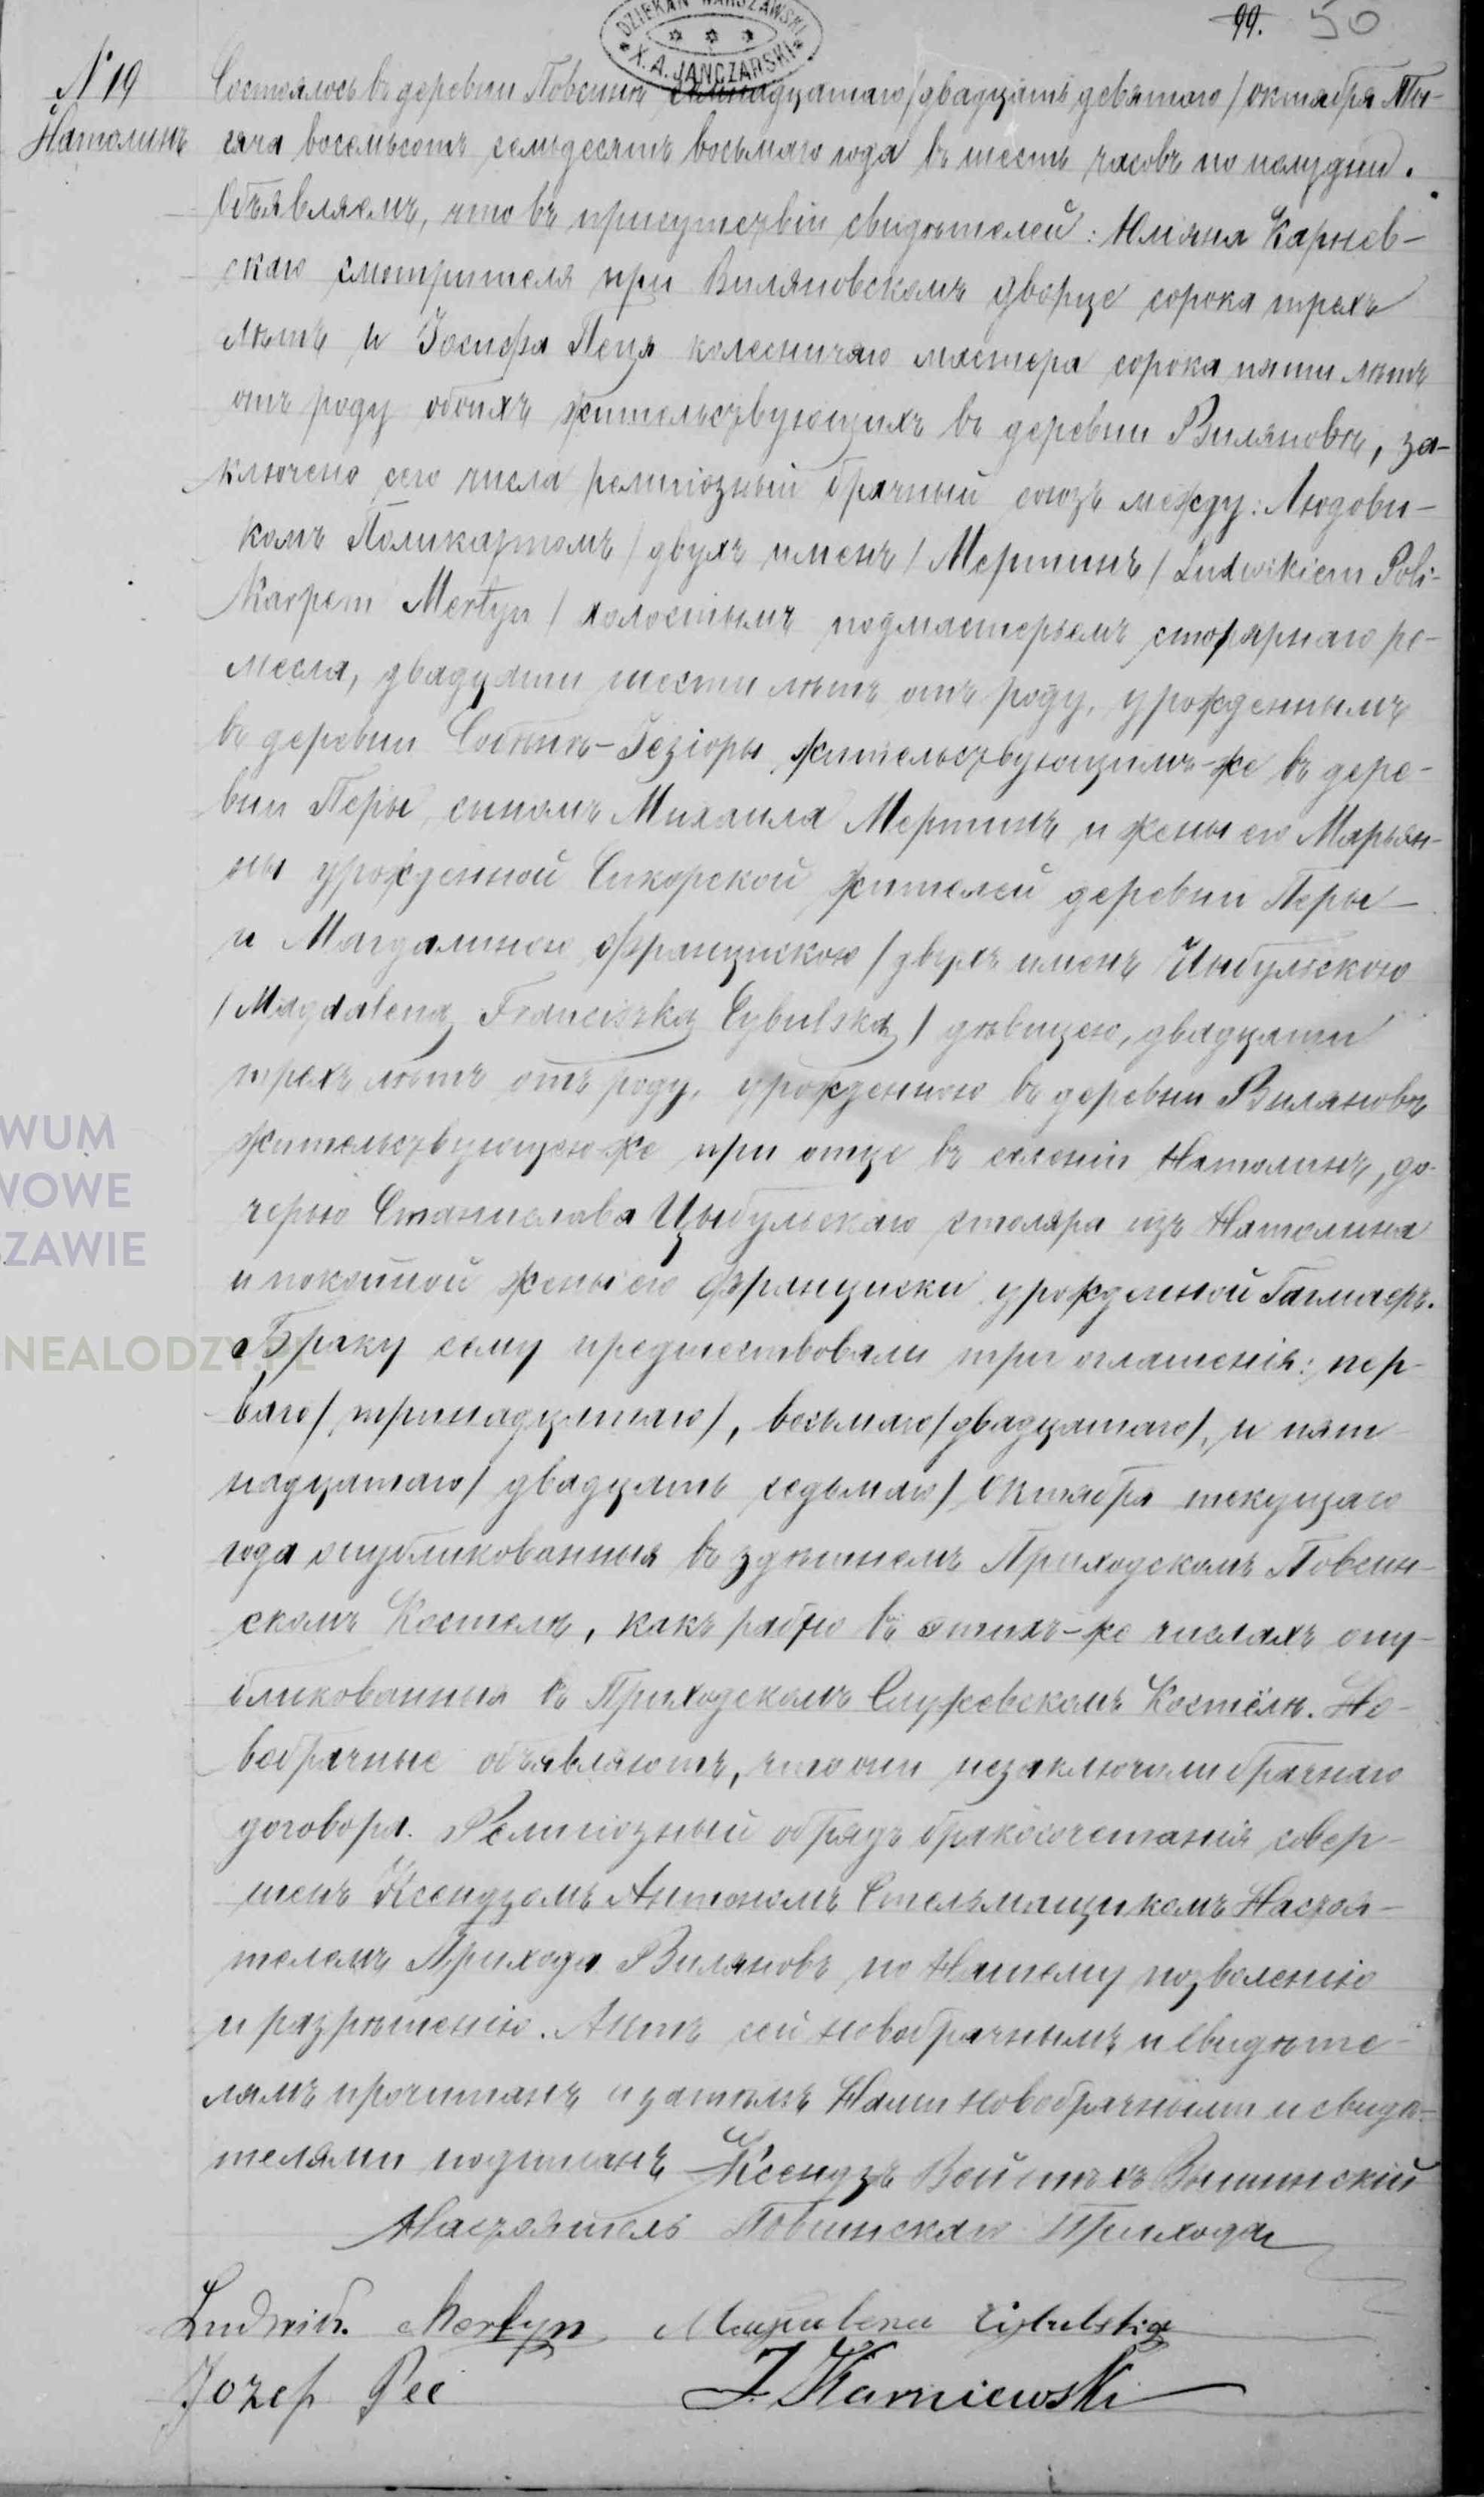 DZIEKAN WARSZAWSKI
X. A. JANCZARSKI
99. 50
N 19
Натолинъ
Состоялось въ деревни Повсинѣ семнадцатаго /двадцать девятаго/ октября Ты-
сяча восемьсотъ семьдесятъ восьмаго года въ шесть часовъ по полудни.
Объявляемъ, что въ присутствіи свидѣтелей: Юліяна Карнев-
скаго смотрителя при Виляновскомъ дворце сорока трехъ
лѣтъ и Іосифа Пеца колесничаго мастера сорока пяти лѣтъ
отъ роду обоихъ жительствующихъ въ деревни Виляновѣ, за-
ключено сего числа религіозный брачный союзъ между: Людови-
комъ Поликарпомъ /двухъ именъ/ Мертинъ /Ludwikiem Poli-
karpem Mertyn/ холостымъ подмастерьемъ столярнаго ре-
месла, двадцати шести лѣтъ отъ роду, урожденнымъ
въ деревни Собѣкѣ-Іезіоры жительствующимъ-же въ дере-
вни Перы, сыномъ Михаила Мертинъ и жены его Марьян-
ны урожденной Сикорской жителей деревни Перы
и Магдалиною Францискою /двухъ именъ Цыбульскою
/Magdaleną Franciszką Cybulską/ дѣвицею, двадцати
трехъ лѣтъ отъ роду, урожденною въ деревни Виляновѣ
жительствующею-же при отце въ селеніи Натолинъ, до-
черью Станислава Цыбульскаго столяра изъ Натолина
и покойной жены его Франциски урожденной Гагмаеръ.
Браку сему предшествовали три оглашенія: пер-
ваго/тринадцатаго/, восьмаго/двадцатаго/, и пят-
надцатаго/двадцать седьмаго/ Октября текущаго
года опубликованныя въ здѣшнемъ Приходскомъ Повсин-
скомъ Костелѣ, какъ равно въ этихъ-же числахъ опу-
бликованныя въ Приходскомъ Служевскомъ Костёлѣ. Но-
вобрачные объявляютъ, что они незаключили брачнаго
договора. Религіозный обрядъ бракосочетанія совер-
шенъ Ксендзомъ Антономъ Стельмащикомъ Настоя-
телемъ Прихода Виляновъ по Нашему позволенію
и разрѣшенію. Актъ сей новобрачнымъ и свидѣте-
лямъ прочитанъ и затѣмъ Нами новобрачными и свидѣ-
телями подписанъ Ксендзъ Войтѣхъ Вышинскій
Настоятель Повсинскаго Прихода
Ludwik Mertyn Magdalena Cybulska
Jozef Pec J. Karniewski
WUM
WOWE
SZAWIE
NEALODZY.PL